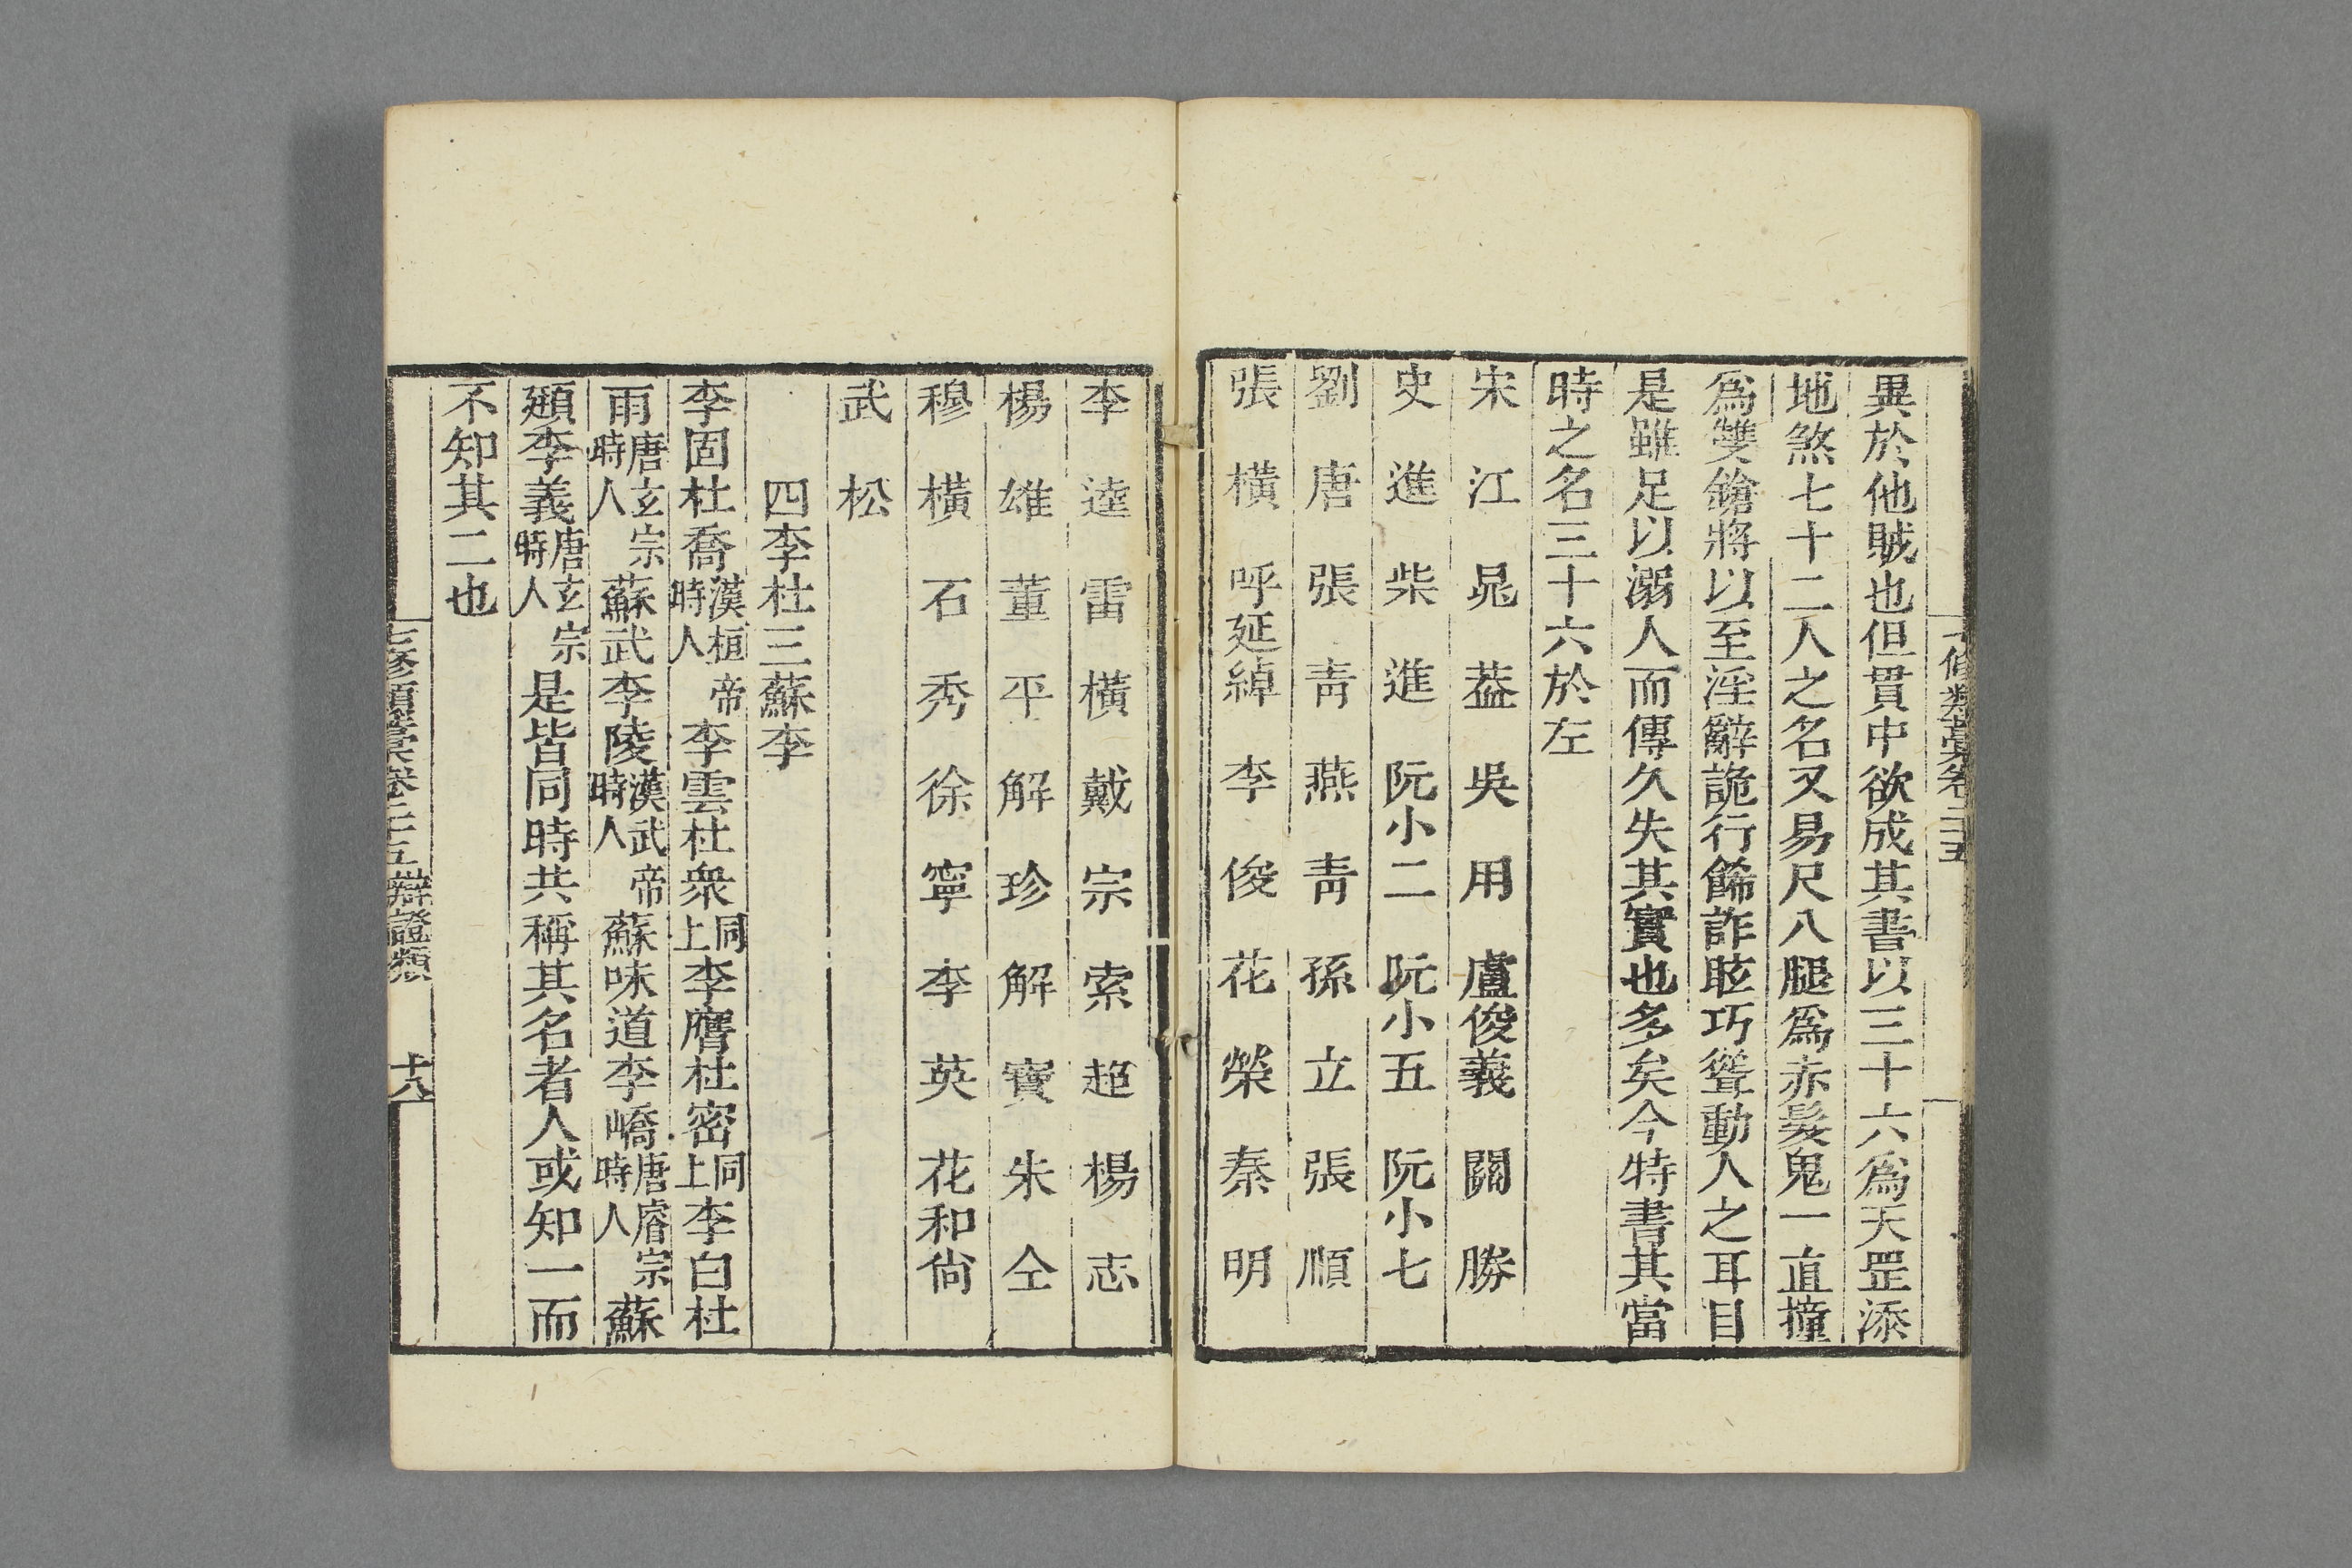 七修類藁卷二五
異於他賊也但貫中欲成其書以三十六爲天罡添
地煞七十二人之名又易尺八腿爲赤髮鬼一直撞
爲雙鎗將以至淫辭詭行餙詐眩巧聳動人之耳目
是雖足以溺人而傳久失其實也多矣今特書其當
時之名三十六於左
宋江 晁葢 吳用 盧俊義 關勝
史進 柴進 阮小二 阮小五 阮小七
劉唐 張靑 燕靑 孫立 張順
張橫 呼延綽 李俊 花榮 秦明
李逵 雷橫 戴宗 索超 楊志
楊雄 董平 解珍 解寶 朱仝
穆橫 石秀 徐寧 李英 花和尙
武松
四李杜三蘇李
李固杜喬漢桓帝時人李雲杜衆同上李膺杜密同上李白杜
甫唐玄宗時人蘇武李陵漢武帝時人蘇味道李嶠唐睿宗時人蘇
頲李義唐玄宗時人是皆同時共稱其名者人或知一而
不知其二也
七修類藁卷二十五 辯證類 十八